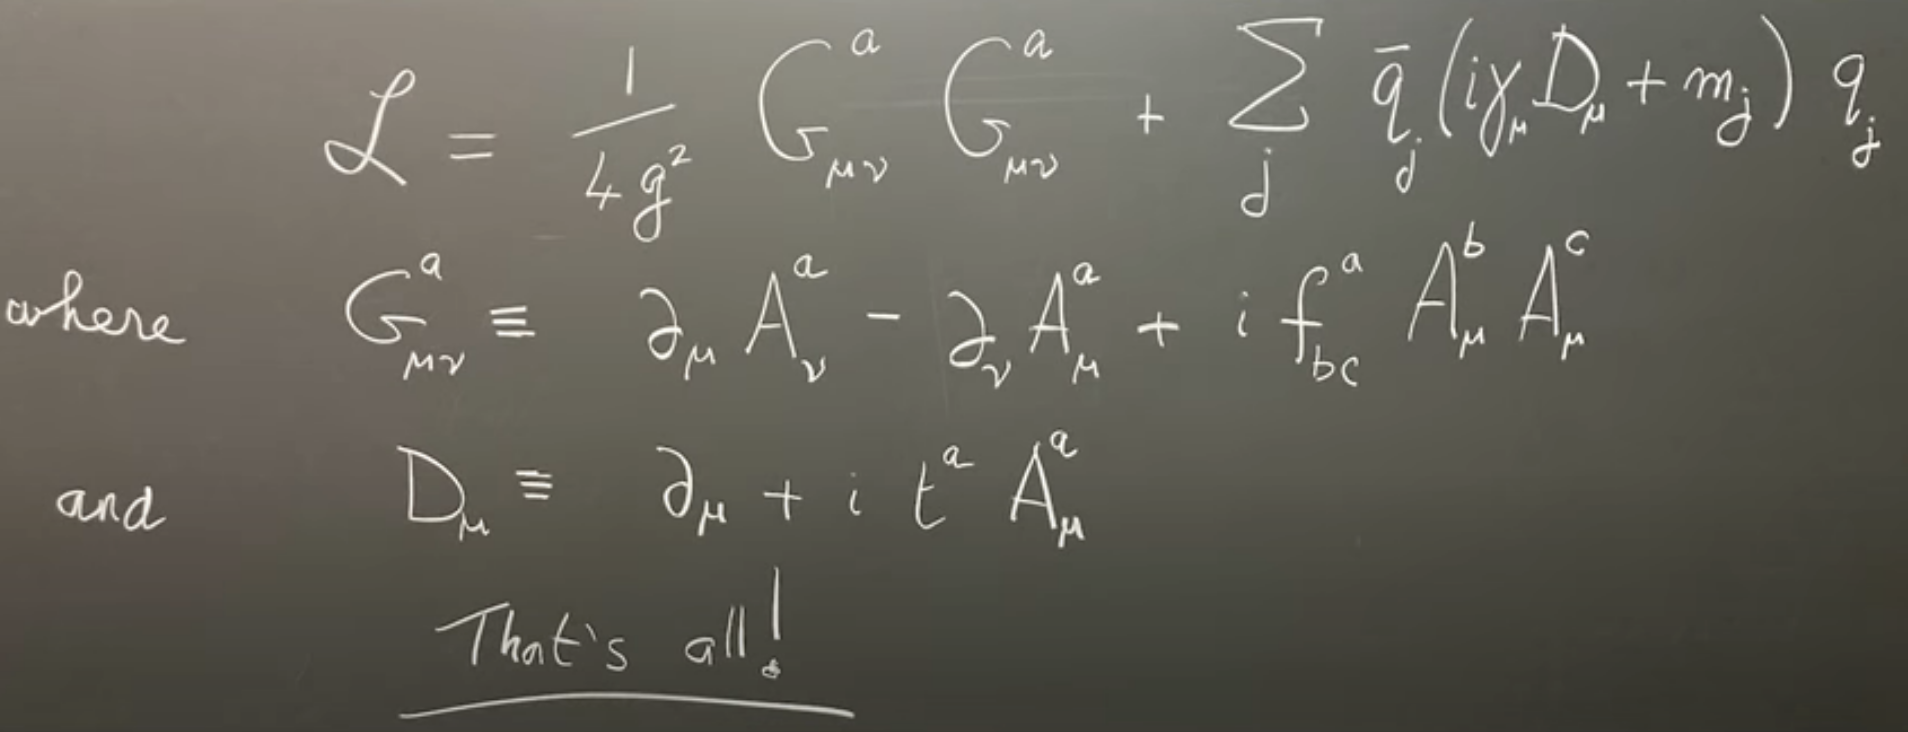 ℒ = 1/(4g²) G^a_μν G^a_μν + Σ_j q̄_j (iγ_μ D_μ + m_j) q_j
where G^a_μν ≡ ∂_μ A^a_ν - ∂_ν A^a_μ + i f^a_bc A^b_μ A^c_μ
and D_μ ≡ ∂_μ + i t^a A^a_μ
That's all!